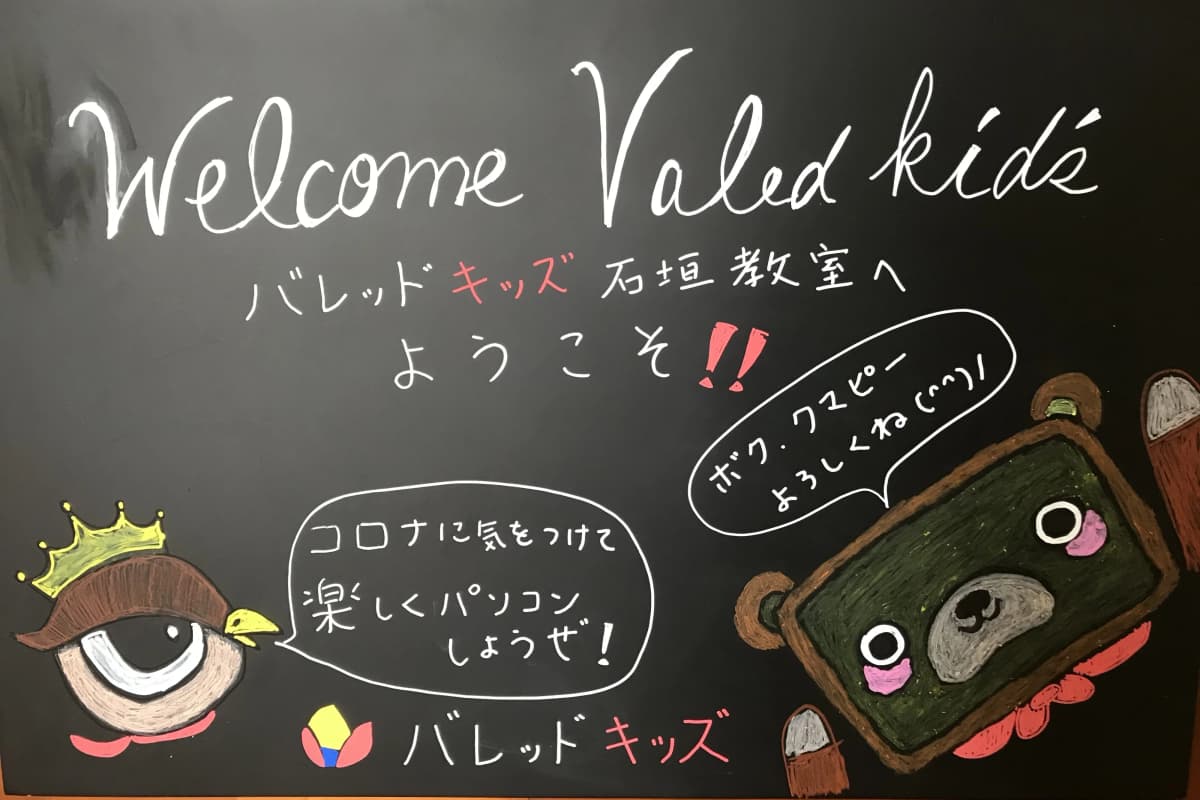 Welcome Valed kid's
バレッドキッズ 石垣教室へ
ようこそ!!
ボク、クマピー
よろしくね(^^)ノ
コロナに気をつけて
楽しくパソコン
しようぜ!
バレッドキッズ